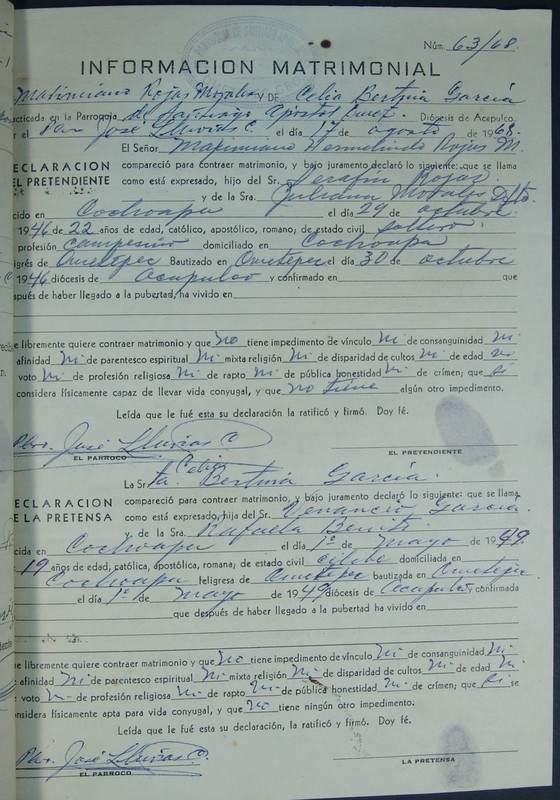 Núm. 63/68.
INFORMACION MATRIMONIAL
Maximiano Rojas Morales Y DE Celia Bertina García
acticada en la Parroquia de Santiago Apóstol Diócesis de Acapulco.
r el Pbro. José Lluvias C. el día 17 de agosto de 1968.
El Señor Maximiano Rojas M.
DECLARACION compareció para contraer matrimonio, y bajo juramento declaró lo siguiente: que se llama
EL PRETENDIENTE como está expresado, hijo del Sr. Serafín Rojas
y de la Sra. Juliana Morales Dfta.
cido en Cochoapa el día 29 de octubre
1946 de 22 años de edad, católico, apostólico, romano, de estado civil soltero.
profesión campesino domiciliado en Cochoapa
igrés de Ometepec Bautizado en Ometepec el día 30 de octubre
1946 diócesis de Acapulco y confirmado en que
spués de haber llegado a la pubertad, ha vivido en
e libremente quiere contraer matrimonio y que no tiene impedimento de vínculo ni de consanguinidad ni
afinidad ni de parentesco espiritual ni mixta religión ni de disparidad de cultos ni de edad ni
voto ni de profesión religiosa ni de rapto ni de pública honestidad ni de crimen; que sí
considera físicamente capaz de llevar vida conyugal, y que no tiene algún otro impedimento.
Leída que le fué esta su declaración la ratificó y firmó. Doy fé.
Pbro. José Lluvias C.
EL PARROCO EL PRETENDIENTE
La Srta. Celia Bertina García.
DECLARACION compareció para contraer matrimonio, y bajo juramento declaró lo siguiente: que se llama
DE LA PRETENSA como está expresado, hija del Sr. Venancio García
y de la Sra. Rafaela Benito
cida en Cochoapa el día 1º de mayo de 1949.
19 años de edad, católica, apostólica, romana, de estado civil célibe domiciliada en
Cochoapa feligresa de Ometepec bautizada en Ometepec
el día 1º de mayo de 1949 diócesis de Acapulco y confirmada
que después de haber llegado a la pubertad ha vivido en
e libremente quiere contraer matrimonio y que no tiene impedimento de vínculo ni de consanguinidad ni
afinidad ni de parentesco espiritual ni mixta religión ni de disparidad de cultos ni de edad ni
e voto ni de profesión religiosa ni de rapto ni de pública honestidad ni de crimen; que sí se
onsidera físicamente apta para vida conyugal, y que no tiene ningún otro impedimento.
Leída que le fué esta su declaración, la ratificó y firmó. Doy fé.
Pbro. José Lluvias C.
EL PARROCO LA PRETENSA